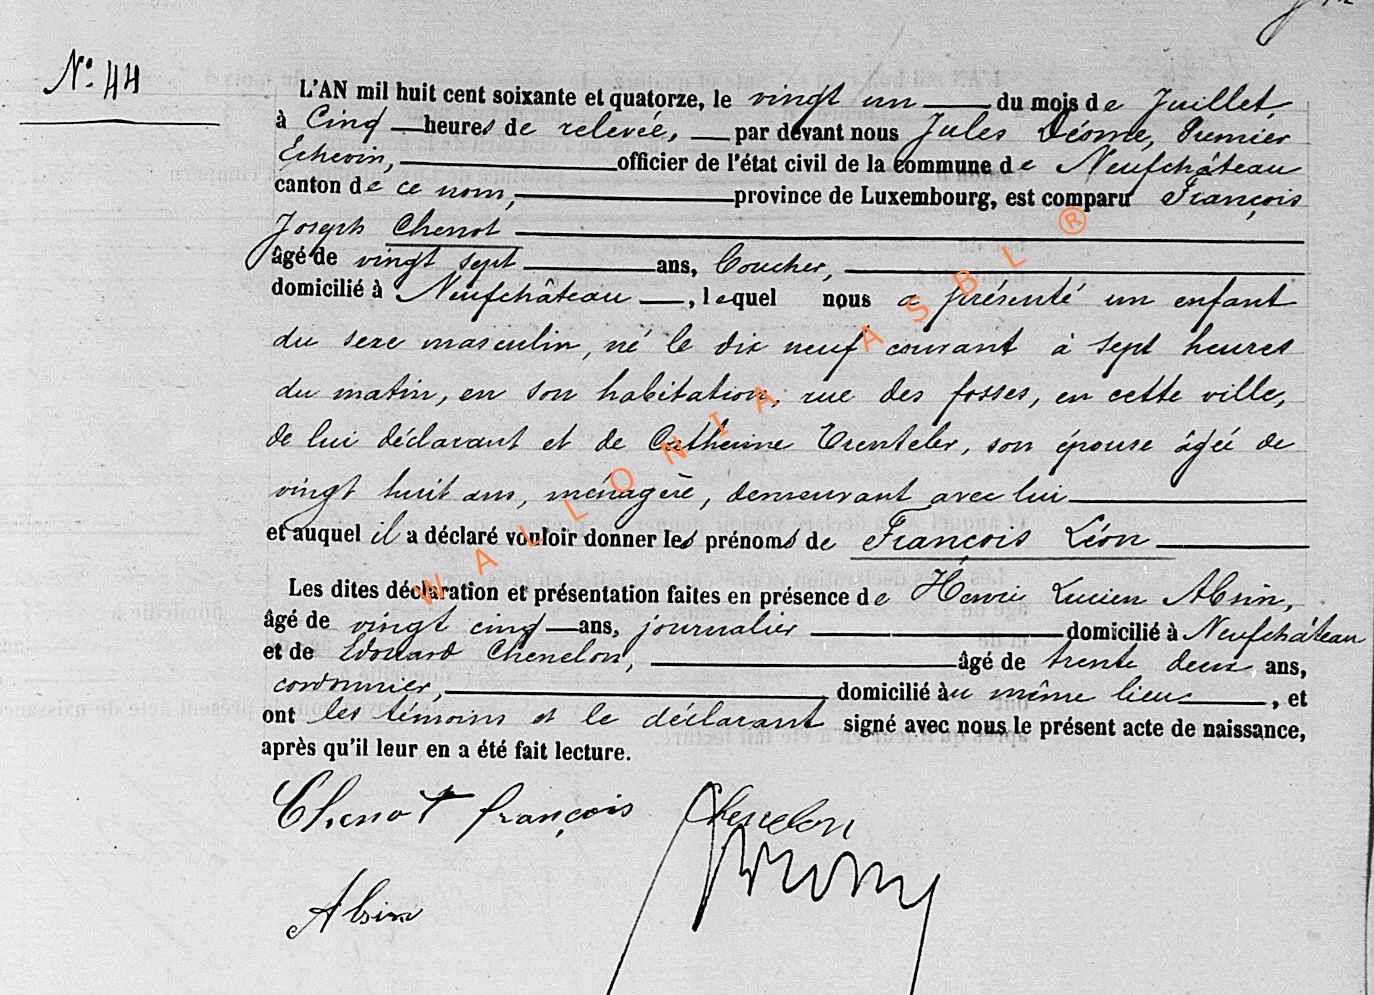 N° 44
L'AN mil huit cent soixante et quatorze, le vingt un du mois de Juillet,
à Cinq heures de relevée, par devant nous Jules Déome, Premier
Echevin, officier de l'état civil de la commune de Neufchâteau
canton de ce nom, province de Luxembourg, est comparu François
Joseph Chenot
âgé de vingt sept ans, Coucher,
domicilié à Neufchâteau, lequel nous a présenté un enfant
du sexe masculin, né le dix neuf courant à sept heures
du matin, en son habitation, rue des fosses, en cette ville,
de lui déclarant et de Catherine Trenteler, son épouse âgée de
vingt huit ans, ménagère, demeurant avec lui
et auquel il a déclaré vouloir donner les prénoms de François Léon
Les dites déclaration et présentation faites en présence de Henri Lucien Absin,
âgé de vingt cinq ans, journalier domicilié à Neufchâteau
et de Edouard Chenelon, âgé de trente deux ans,
cordonnier, domicilié au même lieu, et
ont les témoins et le déclarant signé avec nous le présent acte de naissance,
après qu'il leur en a été fait lecture.
Chenot françois Chenelon
Absin
WALLONIA ASBL ®